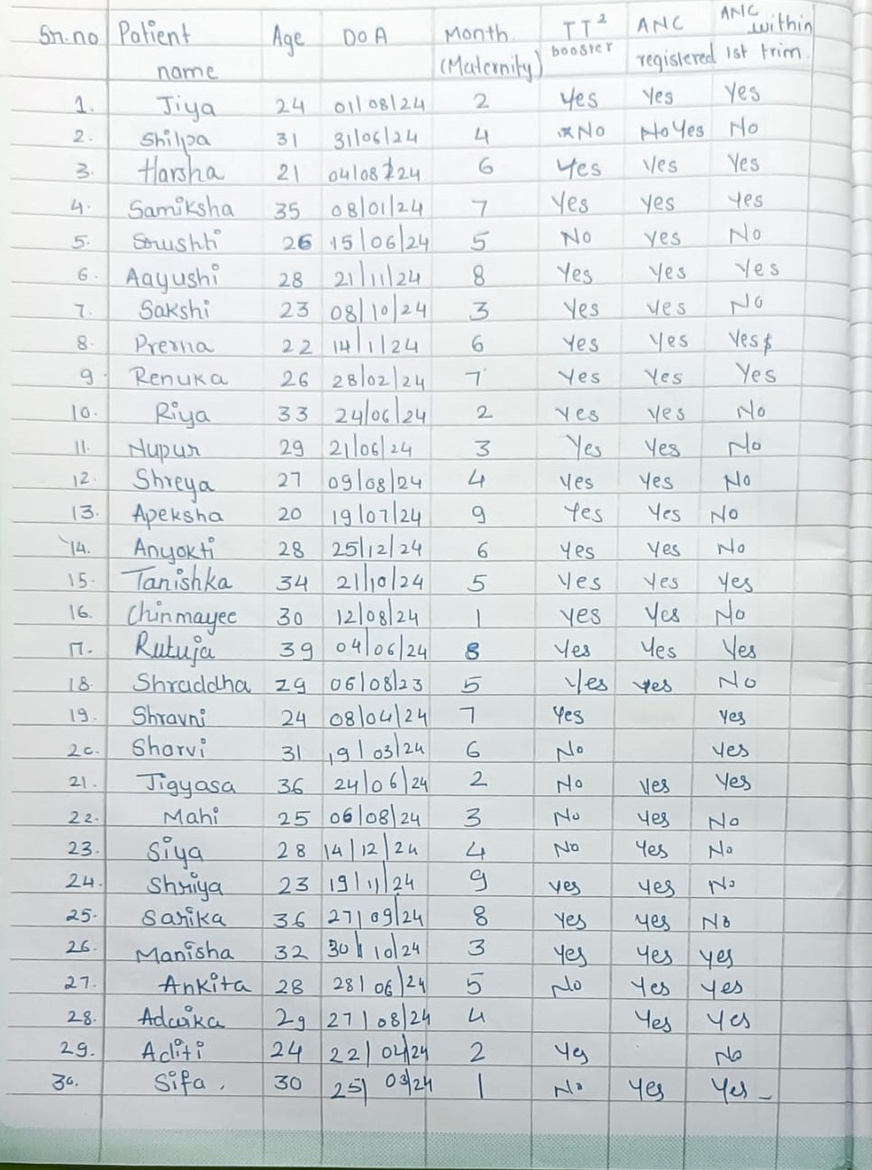 Sr.no Patient name Age DOA Month (Maternity) TT² booster ANC registered ANC within 1st trim.
1. Jiya 24 01/08/24 2 Yes Yes Yes
2. Shilpa 31 31/06/24 4 No No Yes No
3. Harsha 21 04/08/24 6 Yes Yes Yes
4. Samiksha 35 08/01/24 7 Yes Yes Yes
5. Srushti 26 15/06/24 5 No Yes No
6. Aayushi 28 21/11/24 8 Yes Yes Yes
7. Sakshi 23 08/10/24 3 Yes Yes No
8. Prerna 22 14/1/24 6 Yes Yes Yes
9. Renuka 26 28/02/24 7 Yes Yes Yes
10. Riya 33 24/06/24 2 Yes Yes No
11. Nupur 29 21/06/24 3 Yes Yes No
12. Shreya 27 09/08/24 4 Yes Yes No
13. Apeksha 20 19/07/24 9 Yes Yes No
14. Anyokti 28 25/12/24 6 Yes Yes No
15. Tanishka 34 21/10/24 5 Yes Yes Yes
16. Chinmayee 30 12/08/24 1 Yes Yes No
17. Rutuja 39 04/06/24 8 Yes Yes Yes
18. Shraddha 29 06/08/23 5 Yes Yes No
19. Shravni 24 08/04/24 7 Yes Yes
20. Sharvi 31 19/03/24 6 No Yes
21. Jigyasa 36 24/06/24 2 No Yes Yes
22. Mahi 25 06/08/24 3 No Yes No
23. Siya 28 14/12/24 4 No Yes No
24. Shriya 23 19/11/24 9 Yes Yes No
25. Sarika 36 27/09/24 8 Yes Yes No
26. Manisha 32 30/10/24 3 Yes Yes Yes
27. Ankita 28 28/06/24 5 No Yes Yes
28. Advika 29 27/08/24 4 Yes Yes
29. Aditi 24 22/04/24 2 Yes No
30. Sifa. 30 25/03/24 1 No Yes Yes